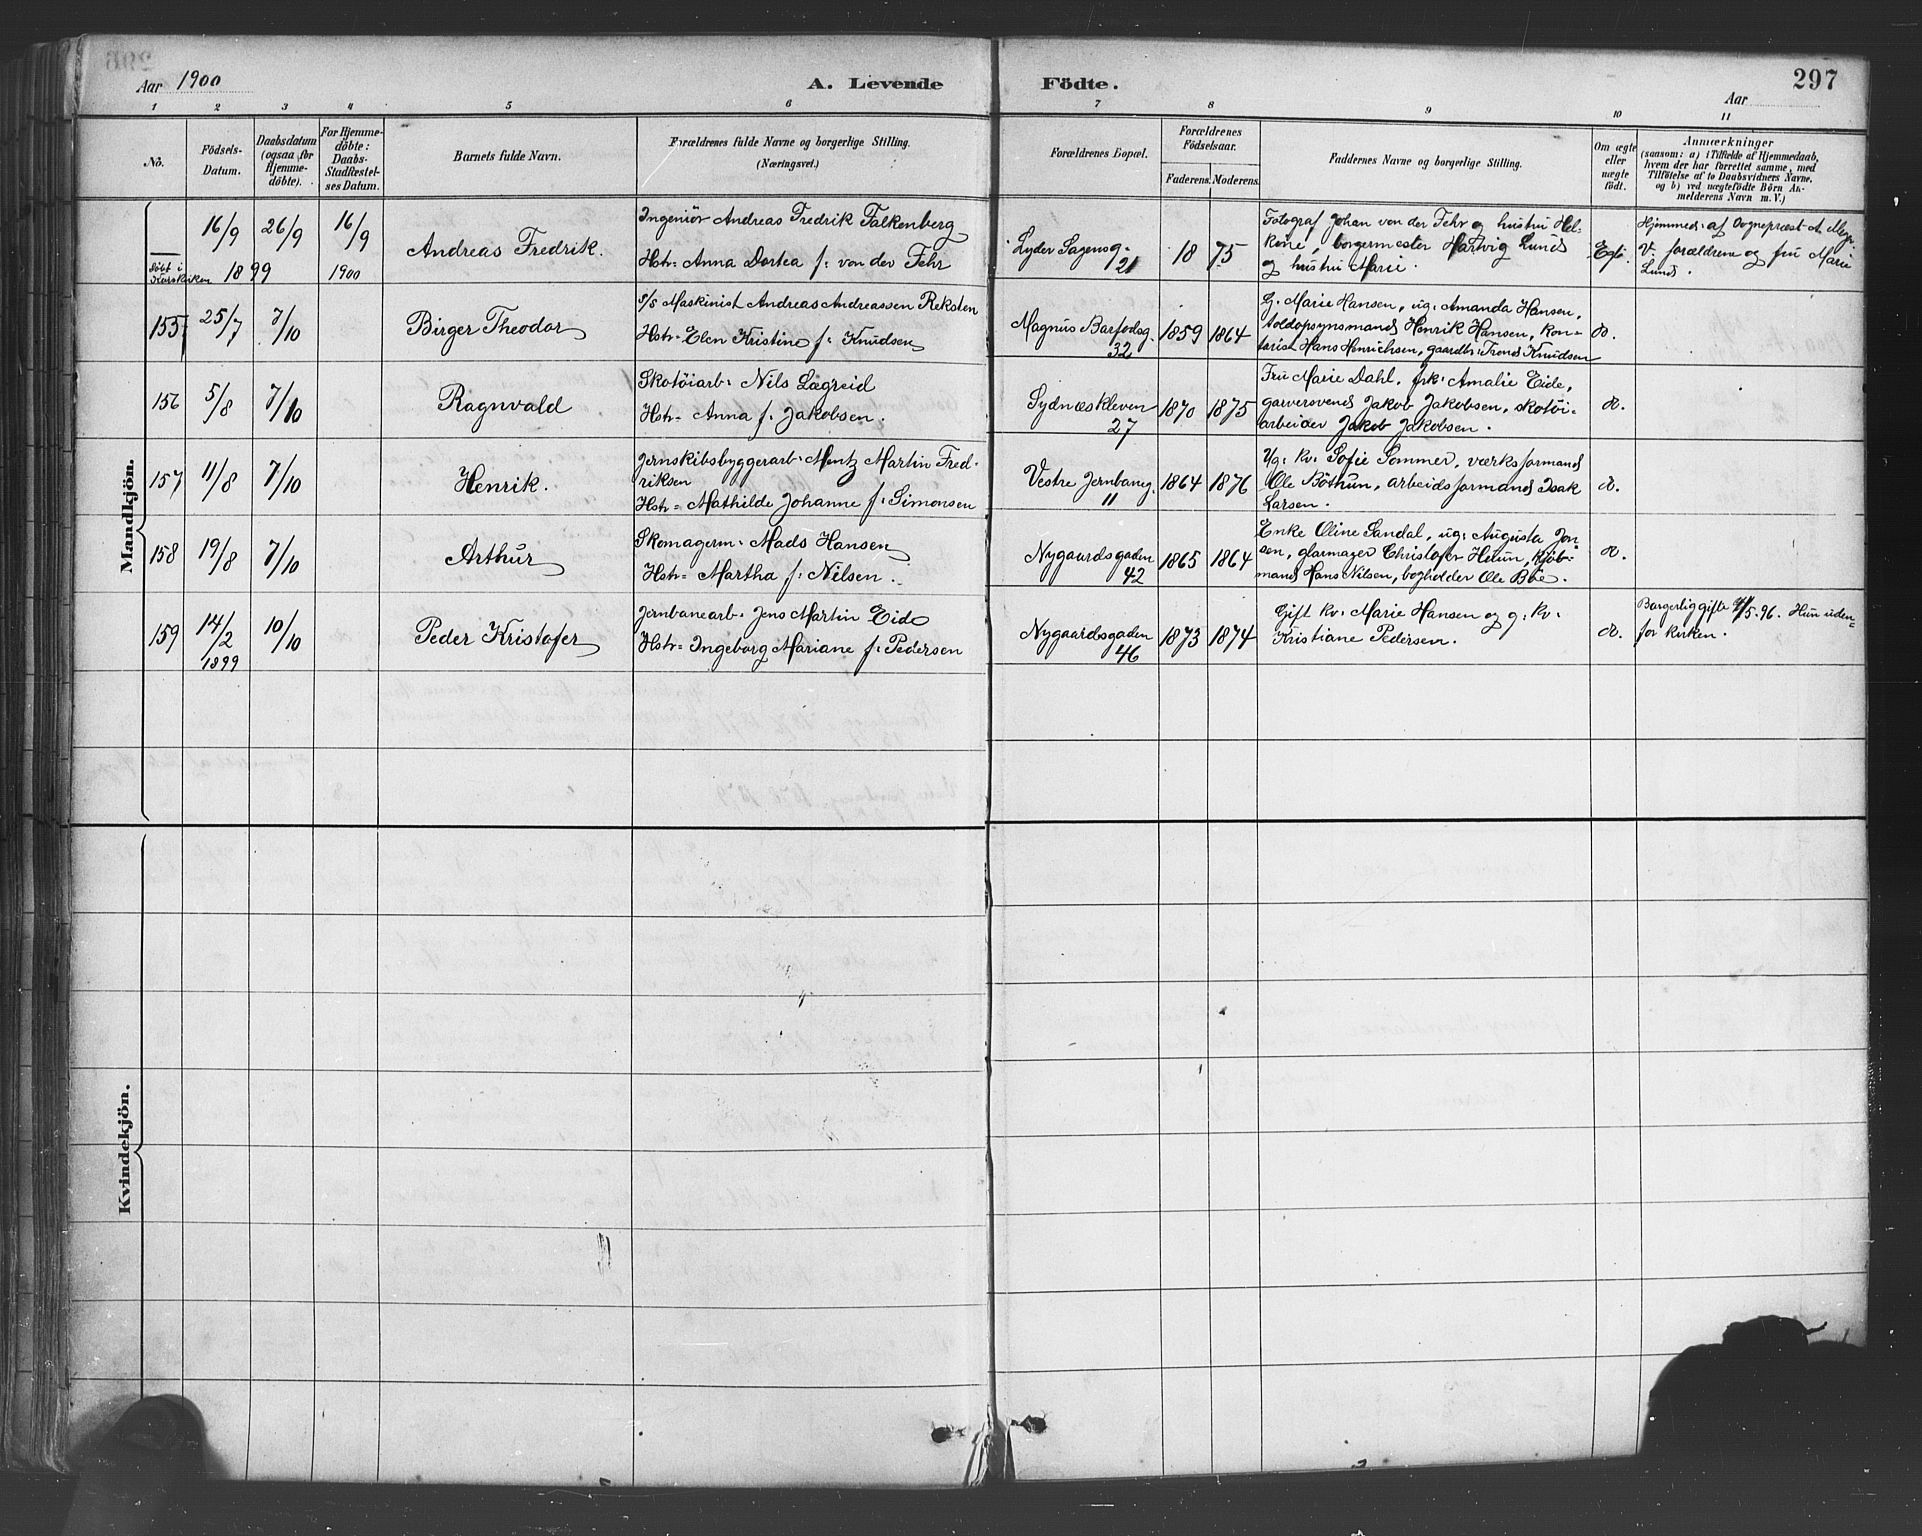 Aar 1900
A. Levende
Födte.
297
Aar
1 2 3 4 5 6 7 8 9 10 11
No.
Födsels-
Datum.
Daabsdatum
(ogsaa for
Hjemme-
döbte).
For Hjemme-
döbte:
Daabs-
Stadfæstel-
ses Datum.
Barnets fulde Navn.
Forældrenes fulde Navne og borgerlige Stilling.
(Næringsvei.)
Forældrenes Bopæl.
Forældrenes
Födselsaar.
Faderens. Moderens.
Faddernes Navne og borgerlige Stilling.
Om ægte
eller
uægte
födt.
Anmærkninger
(saasom: a) i Tilfælde af Hjemmedaab,
hvem der har forrettet samme, med
Tilföielse af to Daabsvidners Navne,
og b) ved uægtefödte Börn An-
melderens Navn m. V.)
Mandkjön.
16/9 26/9 16/9
Döbt i
Korskirken 1899 1900
Andreas Fredrik.
Ingeniör Andreas Fredrik Falkenberg
Hstr. Anna Dortea f. von der Fehr
Lyder Sagensg.
21
18 75
Fotograf Johan von der Fehr og hustru Hel-
kone, borgermester Hartvig Lund
og hustru Marie.
Egt.
Hjemmed. af Sognepræst A. Meyr.
V. forældrene og fru Marie
Lund.
155 25/7 7/10
Birger Theodor
S/S Maskinist Andreas Andreassen Reksten
Hstr. Elen Kristine f. Knudsen
Magnus Barfodsg.
32
1859 1864
G. Marie Hansen, ug. Amanda Hansen,
toldopsynsmand Henrik Hansen, kon-
torist Hans Henrichsen, gaardbr. Trond Knudsen
do.
156 5/8 7/10
Ragnvald
Skotöiarb. Nils Lægreid
Hstr. Anna f. Jakobsen.
Sydnæskleven
27
1870 1875
Fru Marie Dahl, frk. Amalie Eide,
garversvend Jakob Jakobsen, skotöi-
arbeider Jakob Jakobsen.
do.
157 11/8 7/10
Henrik.
Jernskibsbyggerarb. Mentz Martin Fred-
riksen
Hstr. Mathilde Johanne f. Simonsen
Vestre Jernbaneg.
11
1864 1876
Ug. kv. Sofie Sommer, værksformand
Ole Böthun, arbeidsformand Isak
Larsen.
do.
158 19/8 7/10
Arthur
Skomagerm. Mads Hansen
Hstr. Martha f. Nilsen.
Nygaardsgaden
42
1865 1864
Enke Oline Sandal, ug. Augusta Jon-
sen, glarmager Christofer Heiun, kjöb-
mand Hans Nilsen, bogholder Ole Böe.
do.
159 14/2 10/10
1899
Peder Kristofer
Jernbanearb. Jens Martin Eide
Hstr. Ingeborg Mariane f. Pedersen
Nygaardsgaden
46
1873 1874
Gift kv. Marie Hansen og g. kv.
Kristiane Pedersen.
do.
Borgerlig gifte 4/5.96. Hun uden-
for kirken.
Kvindekjön.